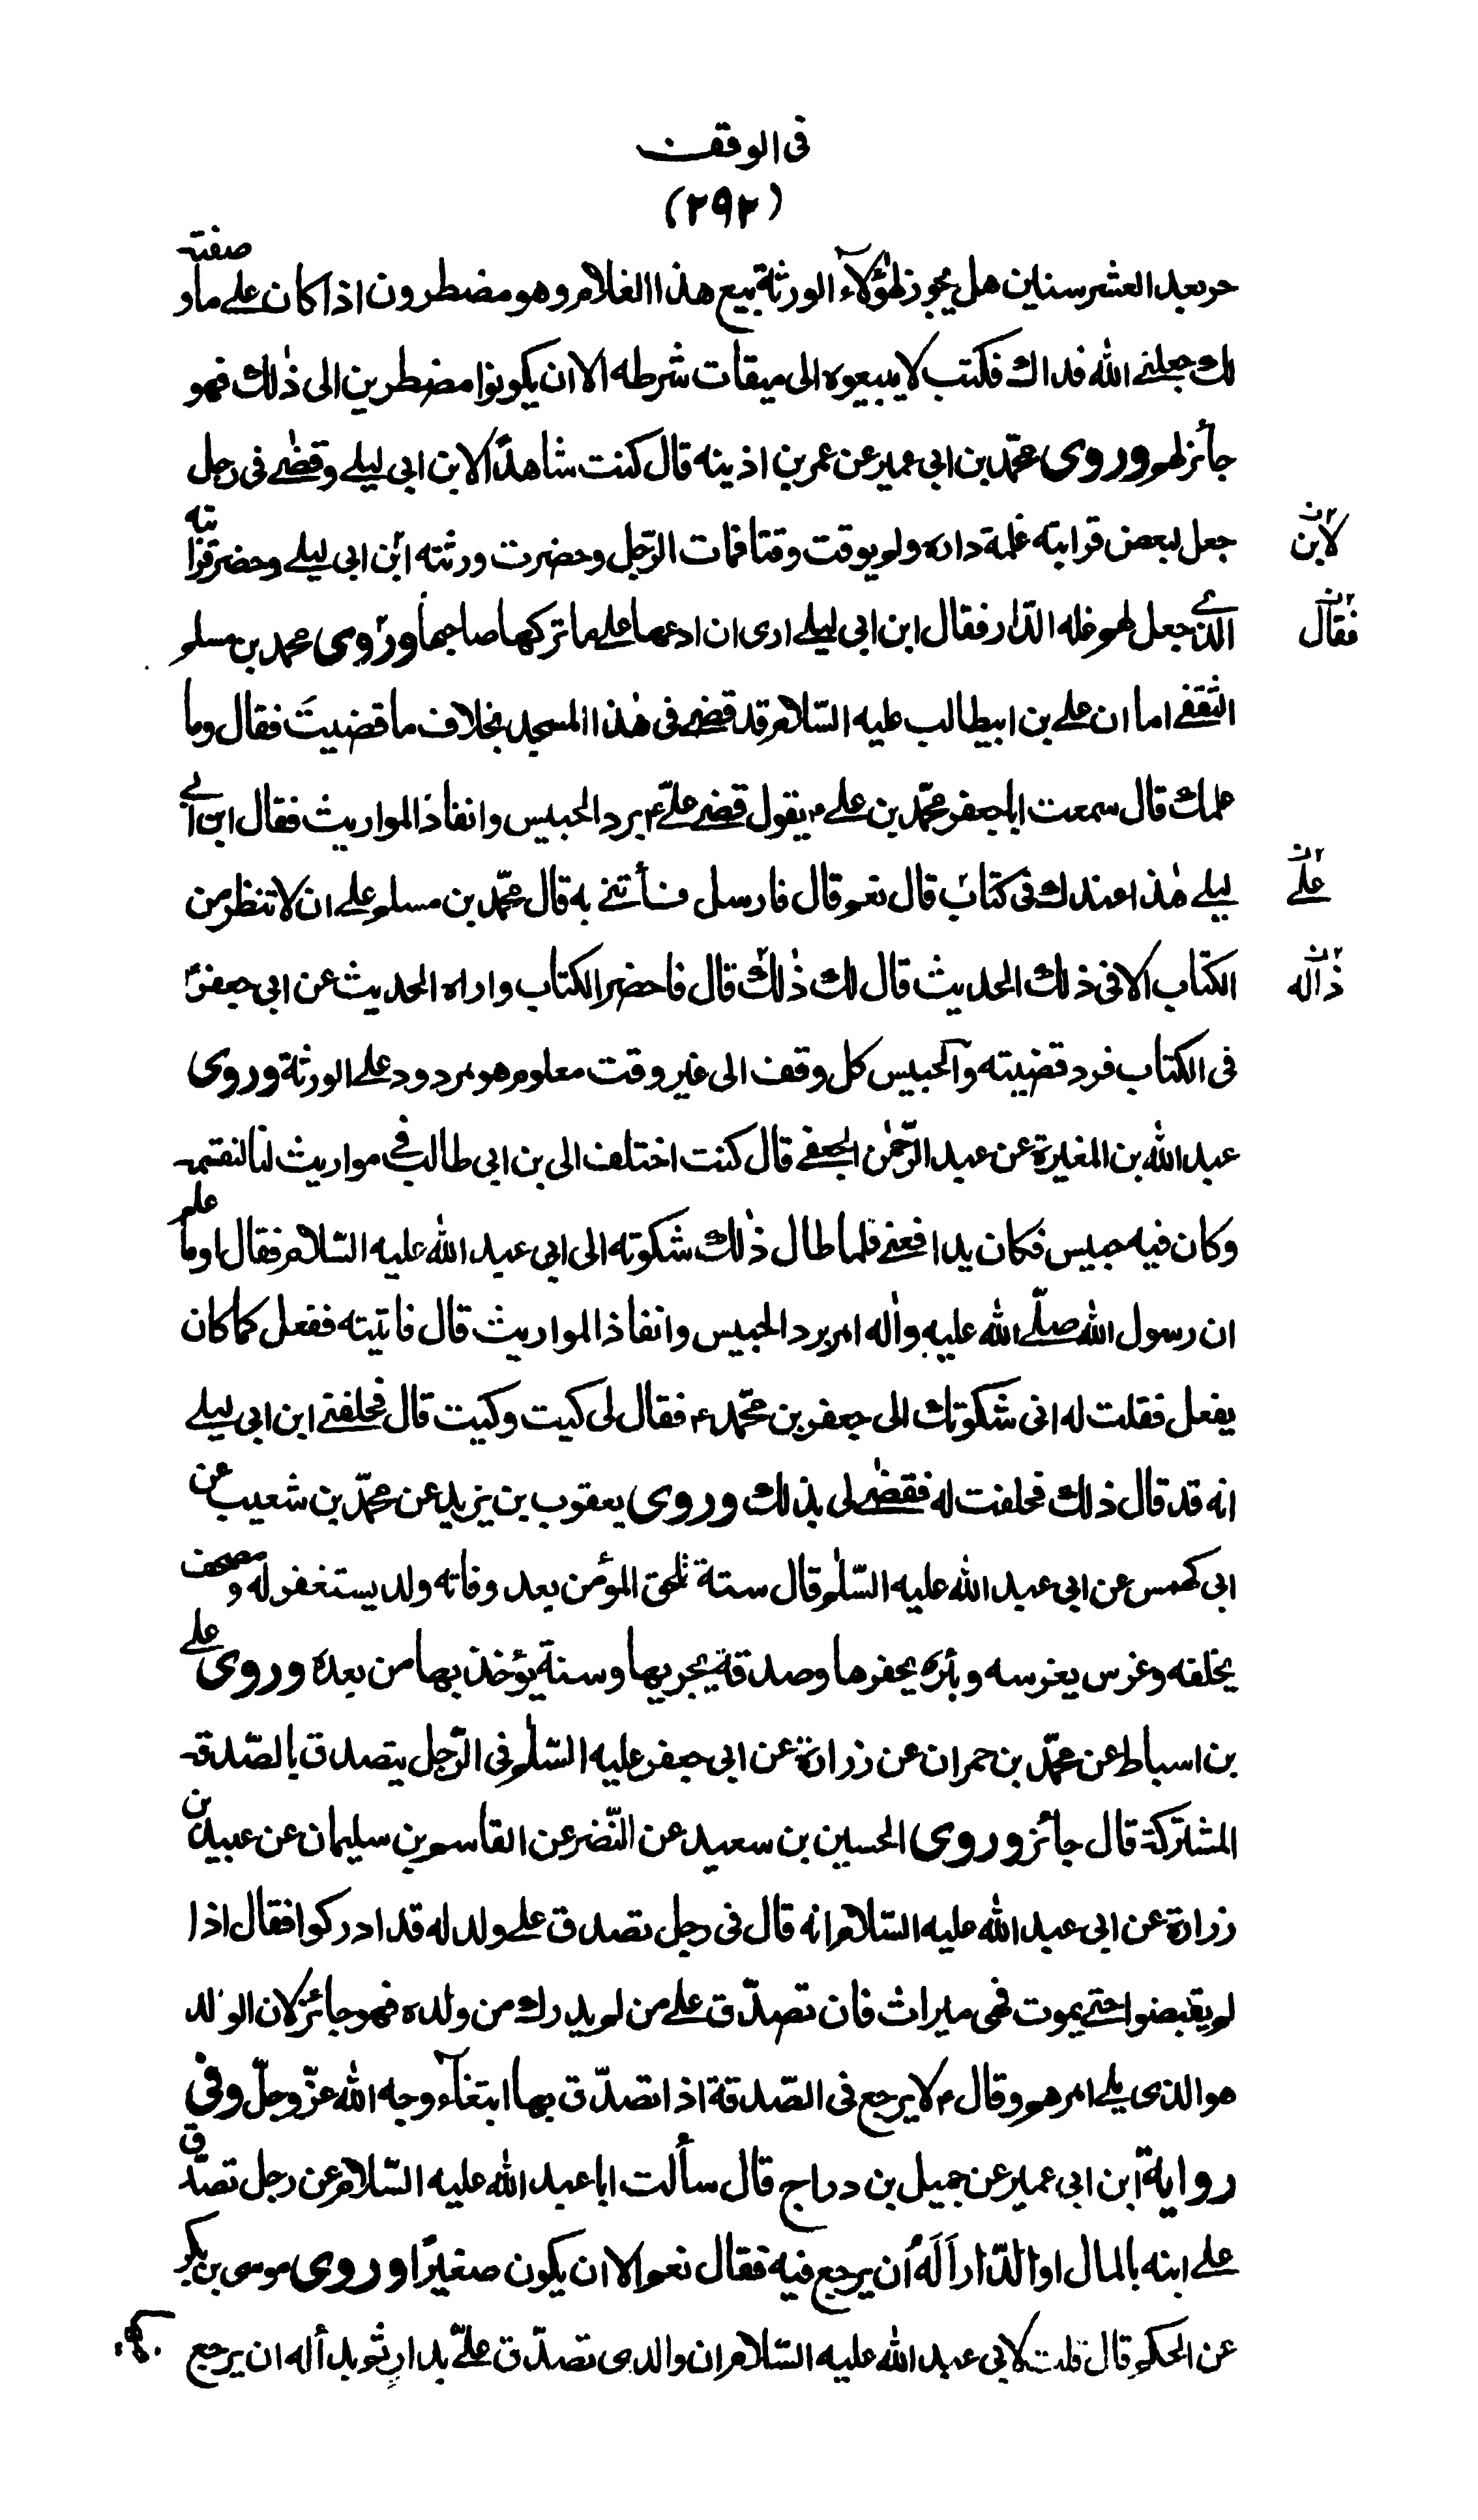 فى الوقف
(٢٩٢)
حر بعد العشر سنين هل يجوز لهؤلاء الورثة بيع هذا الغلام وهم مضطرون اذا كان على ما وصفته
لك جعلنى الله فداك فكتب لا يبيعوه الى ميقات شرطه الا ان يكونوا مضطرين الى ذٰلك فهو
جائز لهم وروى محمّد بن ابى عمير عن عمر بن اذينه قال كنت شاهدًا لابن ابى ليلى وقضٰى فى رجل
جعل لبعض قرابته غلة داره ولم يوقت وقتا فمات الرّجل وحضرت ورثته ابن ابى ليلى وحضر قرابته
لابن
الذى جعل لهم غله الدّار فقال ابن ابى ليلى ارى ان ادعها على ما تركها صاحبها وروى محمد بن مسلم
فقال
الثقفى اما ان على بن ابيطالب عليه السّلام قد قضى فى هٰذا المسجد بخلاف ما قضيتَ فقال وما
علمك قال سمعت ابا جعفر محمّد بن على ٤ يقول قضى علىّ ٤ برد الحبيس وانفاذ المواريث فقال ابن ابى
ليلى هٰذا عندك فى كتاب قال نعم قال فارسل فأتنى به قال محمّد بن مسلم على ان لا تنظر من
علٰى
الكتاب الا فى ذلك الحديث قال لك ذٰلك قال فاحضر الكتاب واراه الحديث عن ابى جعفر ٤
ذا له
فى الكتاب فرد قضيته والحبيس كل وقف الى غير وقت معلوم هو مردود على الورثة وروى
عبد الله بن المغيرة عن عبد الرّحمٰن الجعفى قال كنت اختلف الى بن ابى طالب فى مواريث لنا لنقسمه
وكان فيه حبيس فكان يدافعنى فلما طال ذٰلك شكوته الى ابى عبد الله عليه السّلام فقال اوما علم
ان رسول الله صلّى الله عليه وآله امر برد الحبيس وانفاذ المواريث قال فاتيته ففعل كما كان
يفعل فقلت له انى شكوتك الى جعفر بن محمّد ٤ فقال لى كيت وكيت قال فحلفنى ابن ابى ليلى
انه قد قال ذلك فحلفت له فقضٰى لى بذلك وروى يعقوب بن يزيد عن محمّد بن شعيب عن
ابى كهمس عن ابى عبد الله عليه السّلم قال ستة تلحق المؤمن بعد وفاته ولد يستغفر له ومصحف
يخلفه وغرس يغرسه وبئره يحفرها وصدقة يجريها وسنة يؤخذ بها من بعده وروى على
بن اسباط عن محمّد بن حمران عن زرارة عن ابى جعفر عليه السّلم فى الرّجل يتصدق بالصّدقة
المشتركة قال جائز وروى الحسين بن سعيد عن النّضر عن القاسم بن سليمان عن عبيد بن
زرارة عن ابى عبد الله عليه السّلام انه قال فى رجل تصدق على ولد له قد ادركوا فقال اذا
لم يقبضوا حتى يموت فهى ميراث فان تصدّق على من لم يدرك من ولده فهو جائز لان الولد
هو الذى يلى امرهم وقال ٤ لا يرجع فى الصّدقة اذا تصدّق بها ابتغآء وجه الله عزّ وجلّ وفى
رواية ابن ابى عمير عن جميل بن دراج قال سألت ابا عبد الله عليه السّلام عن رجل تصدّق
على ابنه بالمال او الدّار أله أن يرجع فيه فقال نعم الا ان يكون صغيرًا وروى موسى بن بكر
عن الحكم قال قلت لابى عبد الله عليه السّلام ان والدى تصدّق علىّ بدارٍ ثم بدأ له ان يرجع